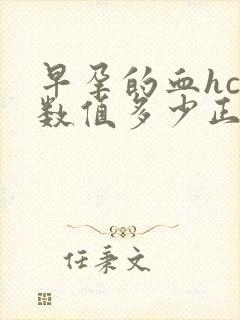 早孕的血hc
数值多少正
任秉文